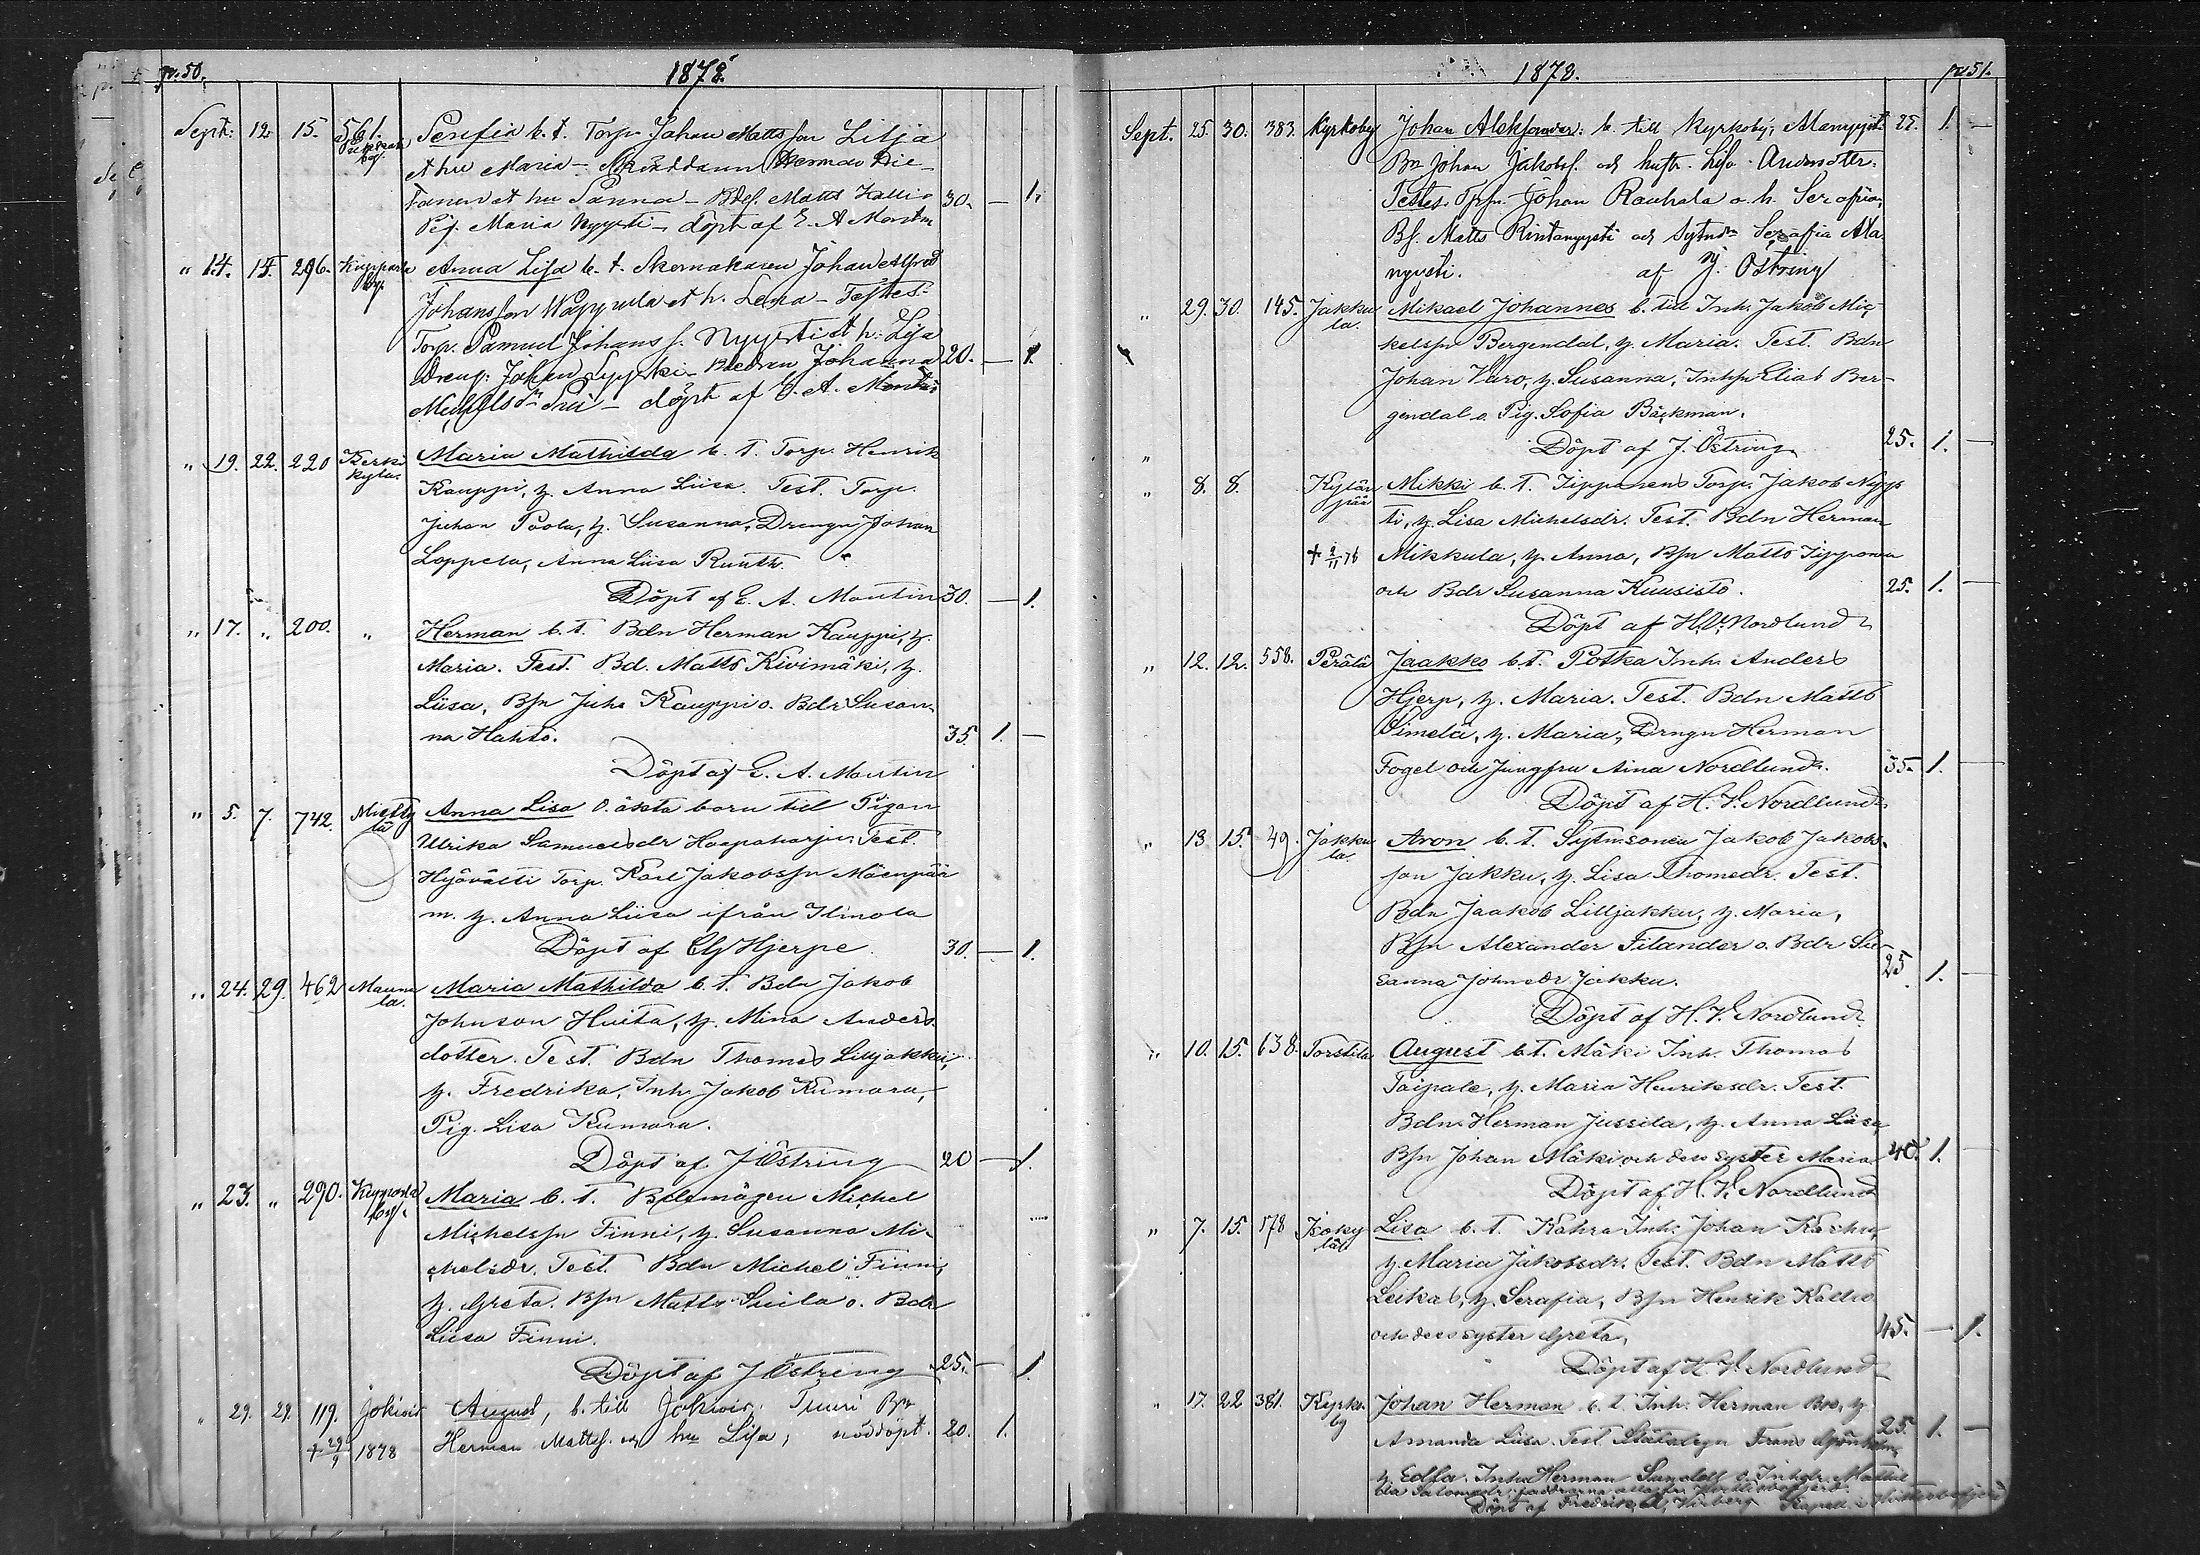 p. 50.
1878.
Sept. 12. 15. 561. Serafia b. t. Torp. Johan Mattsson Lilja
et hu Maria - Skräddaren Herman
et hu Sanna - Matts Kallio
30. 1.
Pig. Maria Nyysti - döpt af E. A. Montin
" 14. 15. 296. Kuppar by. Anna Lisa b. t. Skomakaren Johan Alfred
Johansson et h. Lena - Testes:
Torp. Samuel Johans s. Nyysti et h. Lisa
Dreng. Johan - Johanna 20. — 1.
Michelsdr - döpt af E. A. Montin
" 19. 22. 220 Kerki kyla. Maria Mathilda b. t. Torp. Henrik
Kauppi, h. Anna Liisa. Test. Torp.
Juhan Poola, h. Susanna, Drengn Johan
Loppela, Anna Liisa Ruuth.
Döpt af E. A. Montin 30. — 1.
" 17. " 200. " Herman b. t. Bdn Herman Kauppi, h.
Maria. Test. Bd. Matts Kivimäki, h.
Liisa, Bsn Juho Kauppi o. Bdr Susan-
na Hahto. 35. 1. —
Döpt af E. A. Montin
" 5. 7. 742. Anna Lisa o. äkta barn till Pigan
Ulrika Samuelsdr Haapaharju. Test.
Hyövälti Torp. Karl Jakobssn Mäenpää
m. h. Anna Liisa ifrån Ilmola
Döpt af Hjerpe. 30. — 1.
" 24. 29. 462 Mauna la. Maria Mathilda b. t. Bdn Jakob
Johnson Huita, h. Mina Anders
dotter. Test. Bdn Thomas Lilljakku,
h. Fredrika, Inh. Jakob Kumara,
Pig. Lisa Kumara.
Döpt af J Östring 20 — 1.
" 23. " 290. Kupparla by. Maria b. t. Bdsmågen Michel
Michelssn Finni, h. Susanna Mi-
chelsdr. Test. Bdn Michel Finni
h. Greta. Bsn Matts o. Bdr
Liisa Finni.
Döpt af J Östring 25. — 1.
" 29. 29. 119. Jokivis August, b. till Jokivis, Tuuri Bn
+ 29/9 1878 Herman Mattss. och hu Lisa, nöddöpt. 20. 1.
1878.
pa 51.
Sept. 25. 30. 383. Kyrkoby Johan Aleksander. b. till Kyrkoby, Alanyyst. 25. 1. —
Bn Johan Jakobs. och hustr. Lisa Andersdotter.
Testes. Johan Rauhala o. h. Serafia,
Bs. Matts Rintanyysti och Sytndr Serafia Ala
nyysti. af J. Östring
" 29. 30. 145. Jakku la. Mikael Johannes b. till Inh. Jakob Mic-
kelssn Bergendal, h. Maria. Test. Bdn
Johan Varo, h. Susanna, Inhsn Elias Ber-
gendal o. Pig. Sofia Bäckman.
" Döpt af J. Östring 25. 1. —
" 8. 8. Kylän pää Mikki b. t. Jipponens Torp. Jakob Nyys
ti, h. Lisa Michelsdr. Test. Bdn Herman
+ 2/11 78 Mikkula, h. Anna, Bsn Matts Jipponen
och Bdr Susanna Kuusisto. 25. 1. —
Döpt af H. V. Nordlund
" 12. 12. 558. Perälä Jaakko b. t. Potka Inh. Anders
Hjerp, h. Maria. Test. Bdn Matts
Simelä, h. Maria, Drngn Herman
Fogel och Jungfru Aina Nordlund. 35. 1. —
Döpt af H. V. Nordlund
" 13 15. 49. Jakku la. Aron b. t. Sytn.sonen Jakob Jakobs-
son Jakku, h. Lisa Thomedr. Test.
Bdn Jaakob Lilljakku, h. Maria,
Bsn Alexander Filander o. Bdr Su-
sanna Johnsdr Jakku. 25. 1. —
Döpt af H. V. Nordlund
" 10. 15. 638. Torstila August b. t. Mäki Inh. Thomas
Taipale, h. Maria Henriksdr. Test.
Bdn Herman Jussila, h. Anna Lisa
Bsn Johan Mäki och dess syster Maria 40. 1. —
Döpt af H. V. Nordlund
" 7. 15. 178 Lisa b. t. Kahra Inh. Johan Kahra,
h. Maria Jakobsdr. Test. Bdn Matts
Leikas, h. Serafia, Bsn Henrik
och dess syster Greta. 45. — 1.
Döpt af H. V. Nordlund
" 17. 22 381. Kyrko. by Johan Herman b. t. Inh. Herman Bro, h.
Amanda Liisa. Test. Frans 25. 1. —
h. Edla. Inhn Herman Sundell o. Inhdr. Mathil
da Salomdr.
Döpt af Fredrik